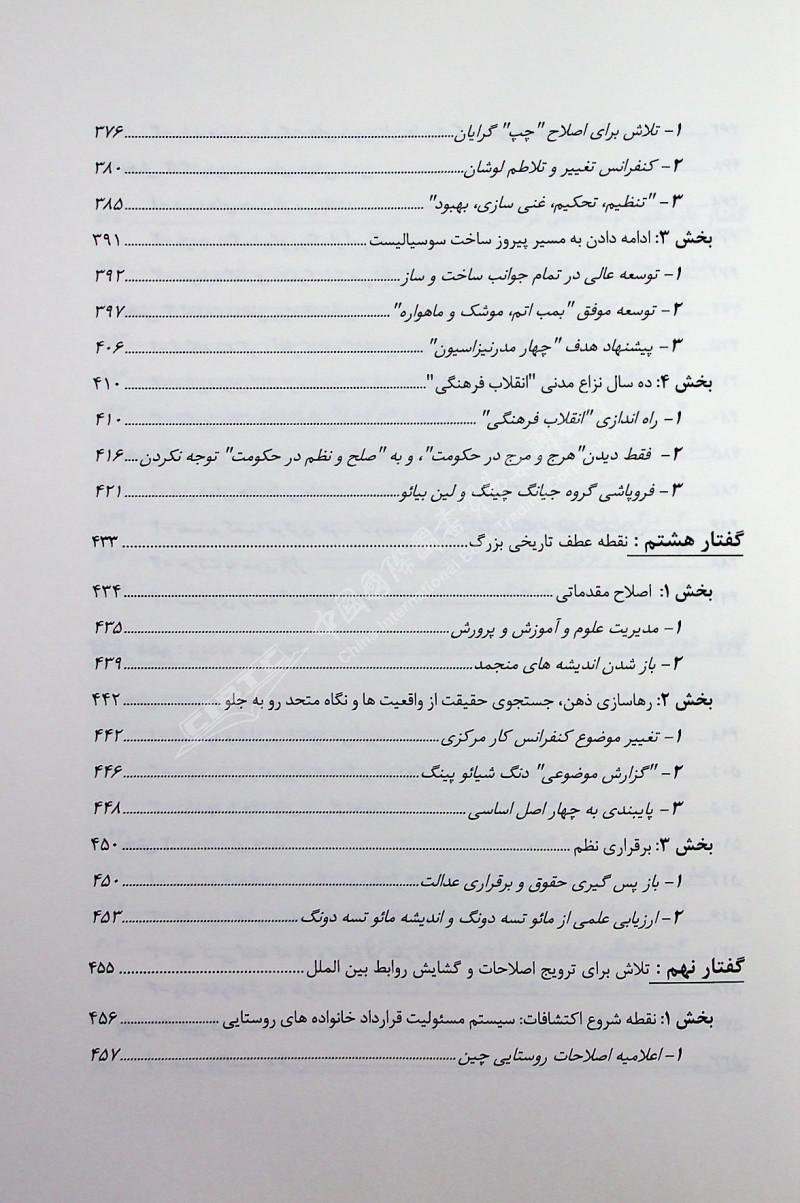 ۱- تلاش برای اصلاح "چپ" گرایان ۳۷۶
۲- کنفرانس تغییر و تلاطم لوشان ۳۸۰
۳- "تنظیم، تحکیم، غنی سازی، بهبود" ۳۸۵
بخش ۳: ادامه دادن به مسیر پیروز ساخت سوسیالیست ۳۹۱
۱- توسعه عالی در تمام جوانب ساخت و ساز ۳۹۲
۲- توسعه موفق "بمب اتم، موشک و ماهواره" ۳۹۷
۳- پیشنهاد هدف "چهار مدرنیزاسیون" ۴۰۶
بخش ۴: ده سال نزاع مدنی "انقلاب فرهنگی" ۴۱۰
۱- راه اندازی "انقلاب فرهنگی" ۴۱۰
۲- فقط دیدن"هرج و مرج در حکومت"، و به "صلح و نظم در حکومت" توجه نکردن ۴۱۶
۳- فروپاشی گروه جیانگ چینگ و لین بیائو ۴۲۱
گفتار هشتم : نقطه عطف تاریخی بزرگ ۴۳۳
بخش ۱: اصلاح مقدماتی ۴۳۴
۱- مدیریت علوم و آموزش و پرورش ۴۳۵
۲- باز شدن اندیشه های منجمد ۴۳۹
بخش ۲: رهاسازی ذهن، جستجوی حقیقت از واقعیت ها و نگاه متحد رو به جلو ۴۴۲
۱- تغییر موضوع کنفرانس کار مرکزی ۴۴۲
۲- "گزارش موضوعی" دنگ شیائو پینگ ۴۴۶
۳- پایبندی به چهار اصل اساسی ۴۴۸
بخش ۳: برقراری نظم ۴۵۰
۱- باز پس گیری حقوق و برقراری عدالت ۴۵۰
۲- ارزیابی علمی از مائو تسه دونگ و اندیشه مائو تسه دونگ ۴۵۳
گفتار نهم : تلاش برای ترویج اصلاحات و گشایش روابط بین الملل ۴۵۵
بخش ۱: نقطه شروع اکتشافات: سیستم مسئولیت قرارداد خانواده های روستایی ۴۵۶
۱- اعلامیه اصلاحات روستایی چین ۴۵۷